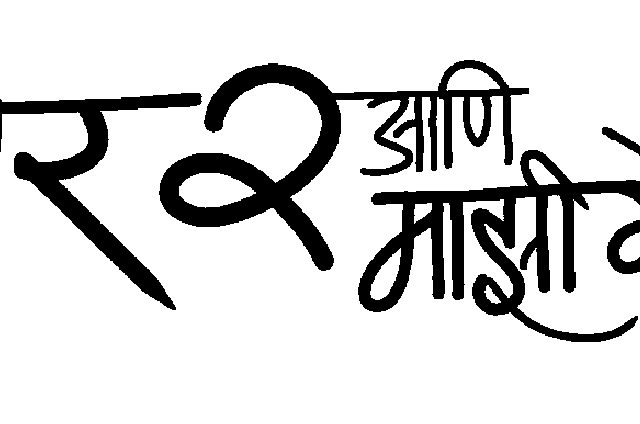 र २ आणि
माझी